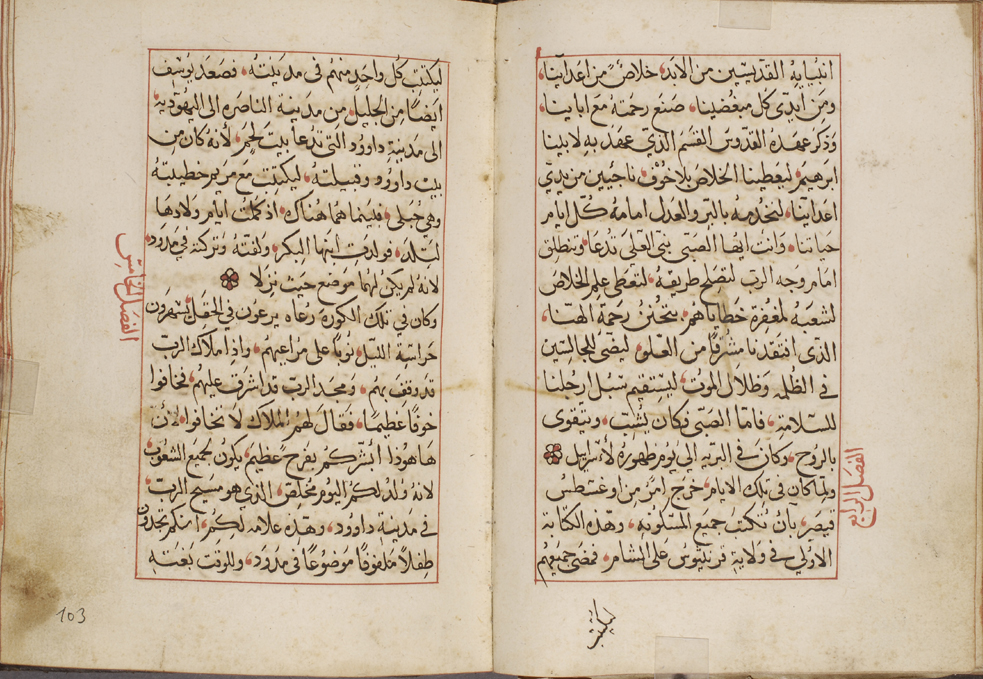 انبيايه القديسين من الابد، خلاصٌ من اعداينا،
ومن ايدي كل مبغضينا، صنع رحمته مع اباينا،
وذكر عهده القدوس القسم الذي عهد به لابينا
ابرهيم، ليعطينا الخلاص بلا خوف، ناجيين من يدي
اعداينا، لنخدمه بالبر والعدل امامه كل ايام
حياتنا، وانت ايها الصبي نبي العلي تدعا، وتنطلق
امام وجه الرب لتصلح طريقه، لتعطي علم الخلاص
لشعبه لمغفرة خطاياهم، بتحنن رحمة الهنا،
الذي افتقدنا مشرقًا من العلو، ليضي للجالسين
في الظلمه وظلال الموت، ليستقيم سبل ارجلنا
للسلامة، فاما الصبي فكان يشبّ، ويتقوى
بالروح، وكان في البريه الي يوم ظهوره لاسراييل
الفصل الرابع
ولما كان في تلك الايام، خرج امرٌ من اوغسطس
قيصر، بأن تكتب جميع المسكونه، وهذه الكتابة
الاولي في ولاية قرينيوس على الشام، فمضى جميعهم
ليكتتب
ليكتتب كل واحدٍ منهم في مدينته، فصعد يوسف
ايضًا من الجليل، من مدينة الناصره الى اليهوديه،
الى مدينة داوود التي تدعا بيت لحم، لأنه كان من
بيت داوود وقبيلته، ليكتتب مع مريم خطيبته
وهي حبلى، فبينما هما هناك، اذ كملت ايام ولادها
لتلد، فولدت ابنها البكر، ولفته وتركته في مدود،
لانه لم يكن لهما موضع حيث نزلا
الفصل الخامس
وكان في تلك الكورة رعاه يرعون في الحقل، يسهرون
حراسة الليل، نوبًا على مراعيهم، واذا ملاك الرب
قد وقف بهم، ومجد الرب قد اشرق عليهم، فخافوا
خوفًا عظيمًا، فقال لهم الملاك لا تخافوا، لأن
ها هوذا أبشركم بفرح عظيم، يكون لجميع الشعوب،
لانه ولد لكم اليوم مخلص، الذي هو مسيح الرب،
في مدينة داوود، وهذه علامه لكم، انكم تجدون
طفلاً ملفوفًا موضوعًا في مدود، وللوقت بغته
103